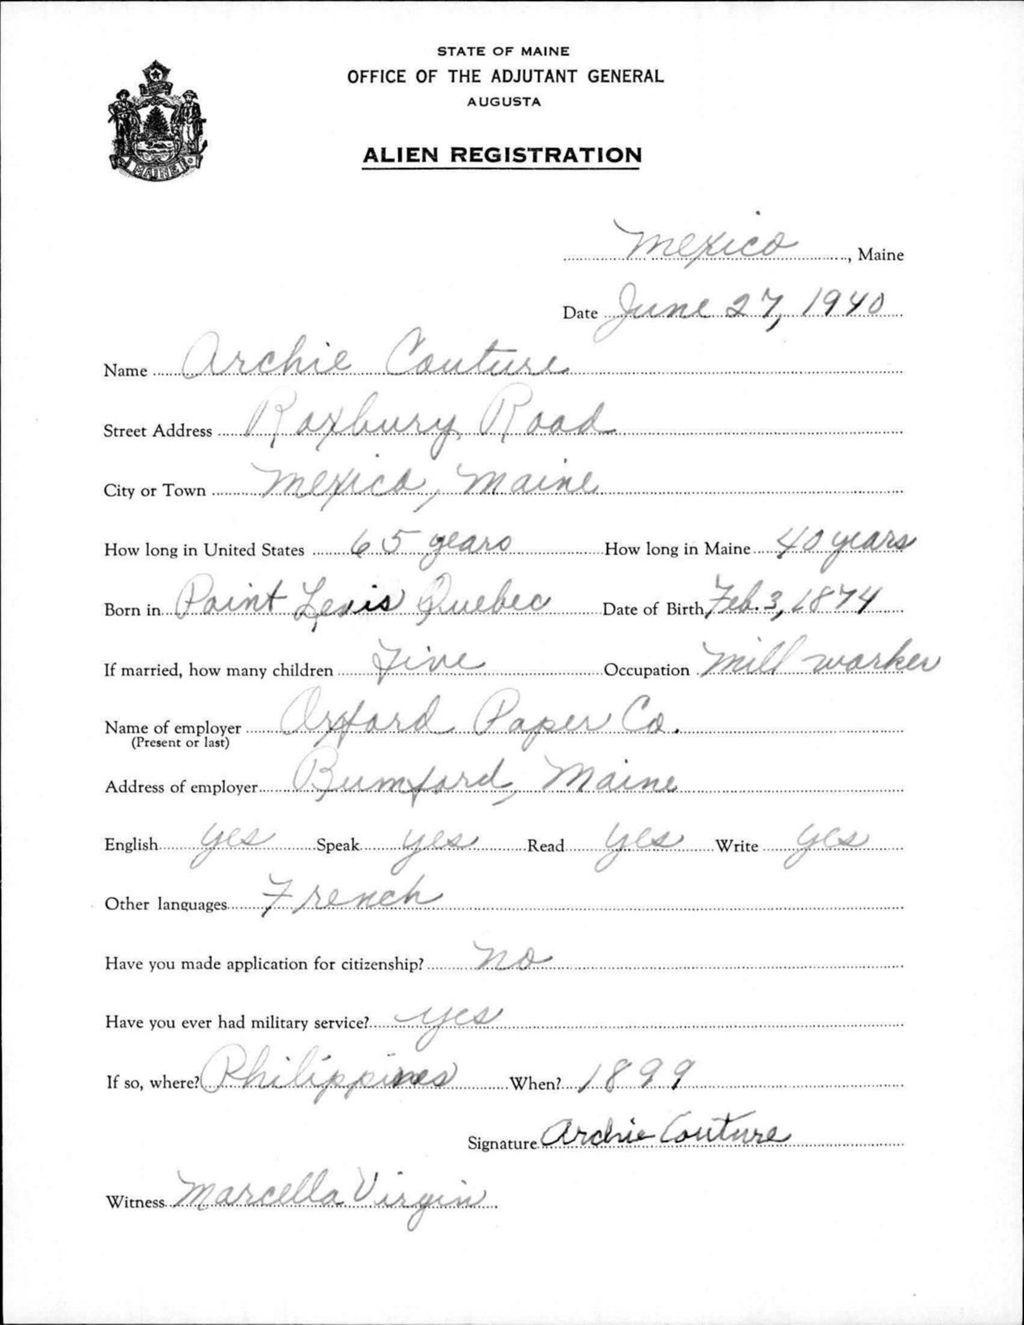 STATE OF MAINE
OFFICE OF THE ADJUTANT GENERAL
AUGUSTA
ALIEN REGISTRATION
MAINE
Mexico, Maine
Date June 27, 1940
Name Archie Couture
Street Address Roxbury Road
City or Town Mexico, Maine
How long in United States 65 years How long in Maine 40 years
Born in Point Levis Quebec Date of Birth Feb. 3, 1874
If married, how many children Five Occupation Mill worker
Name of employer Oxford Paper Co.
(Present or last)
Address of employer Rumford, Maine
English yes Speak yes Read yes Write yes
Other languages French
Have you made application for citizenship? no
Have you ever had military service? yes
If so, where? Philippines When? 1899
Signature Archie Couture
Witness Marcella Virgin